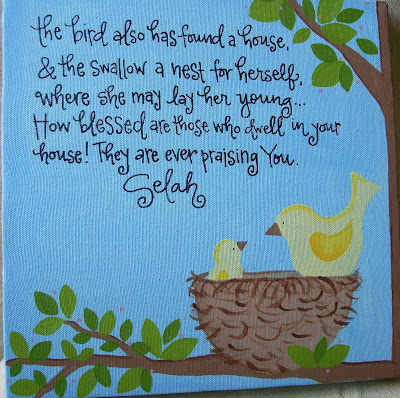 the bird also has found a house,
& the swallow a nest for herself,
where she may lay her young...
How blessed are those who dwell in your
house! They are ever praising You.
Selah